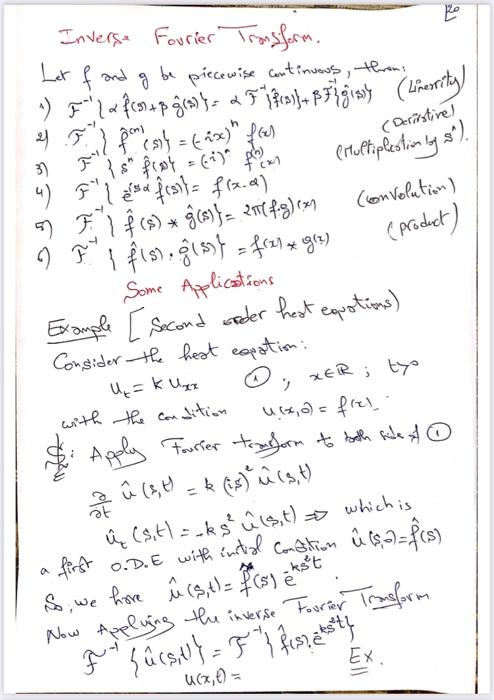 20
Inverse Fourier Transform.
Let f and g be piecewise continuous, then:
1) F⁻¹{α f̂(s)+β ĝ(s)} = α F⁻¹{f̂(s)}+β F⁻¹{ĝ(s)} (Linearity)
2) F⁻¹{f̂⁽ⁿ⁾(s)} = (-ix)ⁿ f(x) (Derivative)
3) F⁻¹{sⁿ f̂(s)} = (-i)ⁿ f⁽ⁿ⁾(x) (Multiplication by sⁿ)
4) F⁻¹{e^{isα} f̂(s)} = f(x-α)
5) F⁻¹{f̂(s) * ĝ(s)} = 2π(f.g)(x) (convolution)
6) F⁻¹{f̂(s) . ĝ(s)} = f(x) * g(x) (product)
Some Applications
Example [Second order heat equations)
Consider the heat equation:
u_t = k u_xx ① , x∈ℝ ; t>0
with the condition u(x,0) = f(x).
: Apply Fourier transform to both side of ①
∂/∂t û(s,t) = k (is)² û(s,t)
û_t(s,t) = -ks² û(s,t) ⇒ which is
a first O.D.E with initial condition û(s,0)=f̂(s)
So, we have û(s,t) = f̂(s) e^{-ks²t}
Now Applying the inverse Fourier Transform
F⁻¹{û(s,t)} = F⁻¹{f̂(s).e^{-ks²t}}
u(x,t) = Ex.